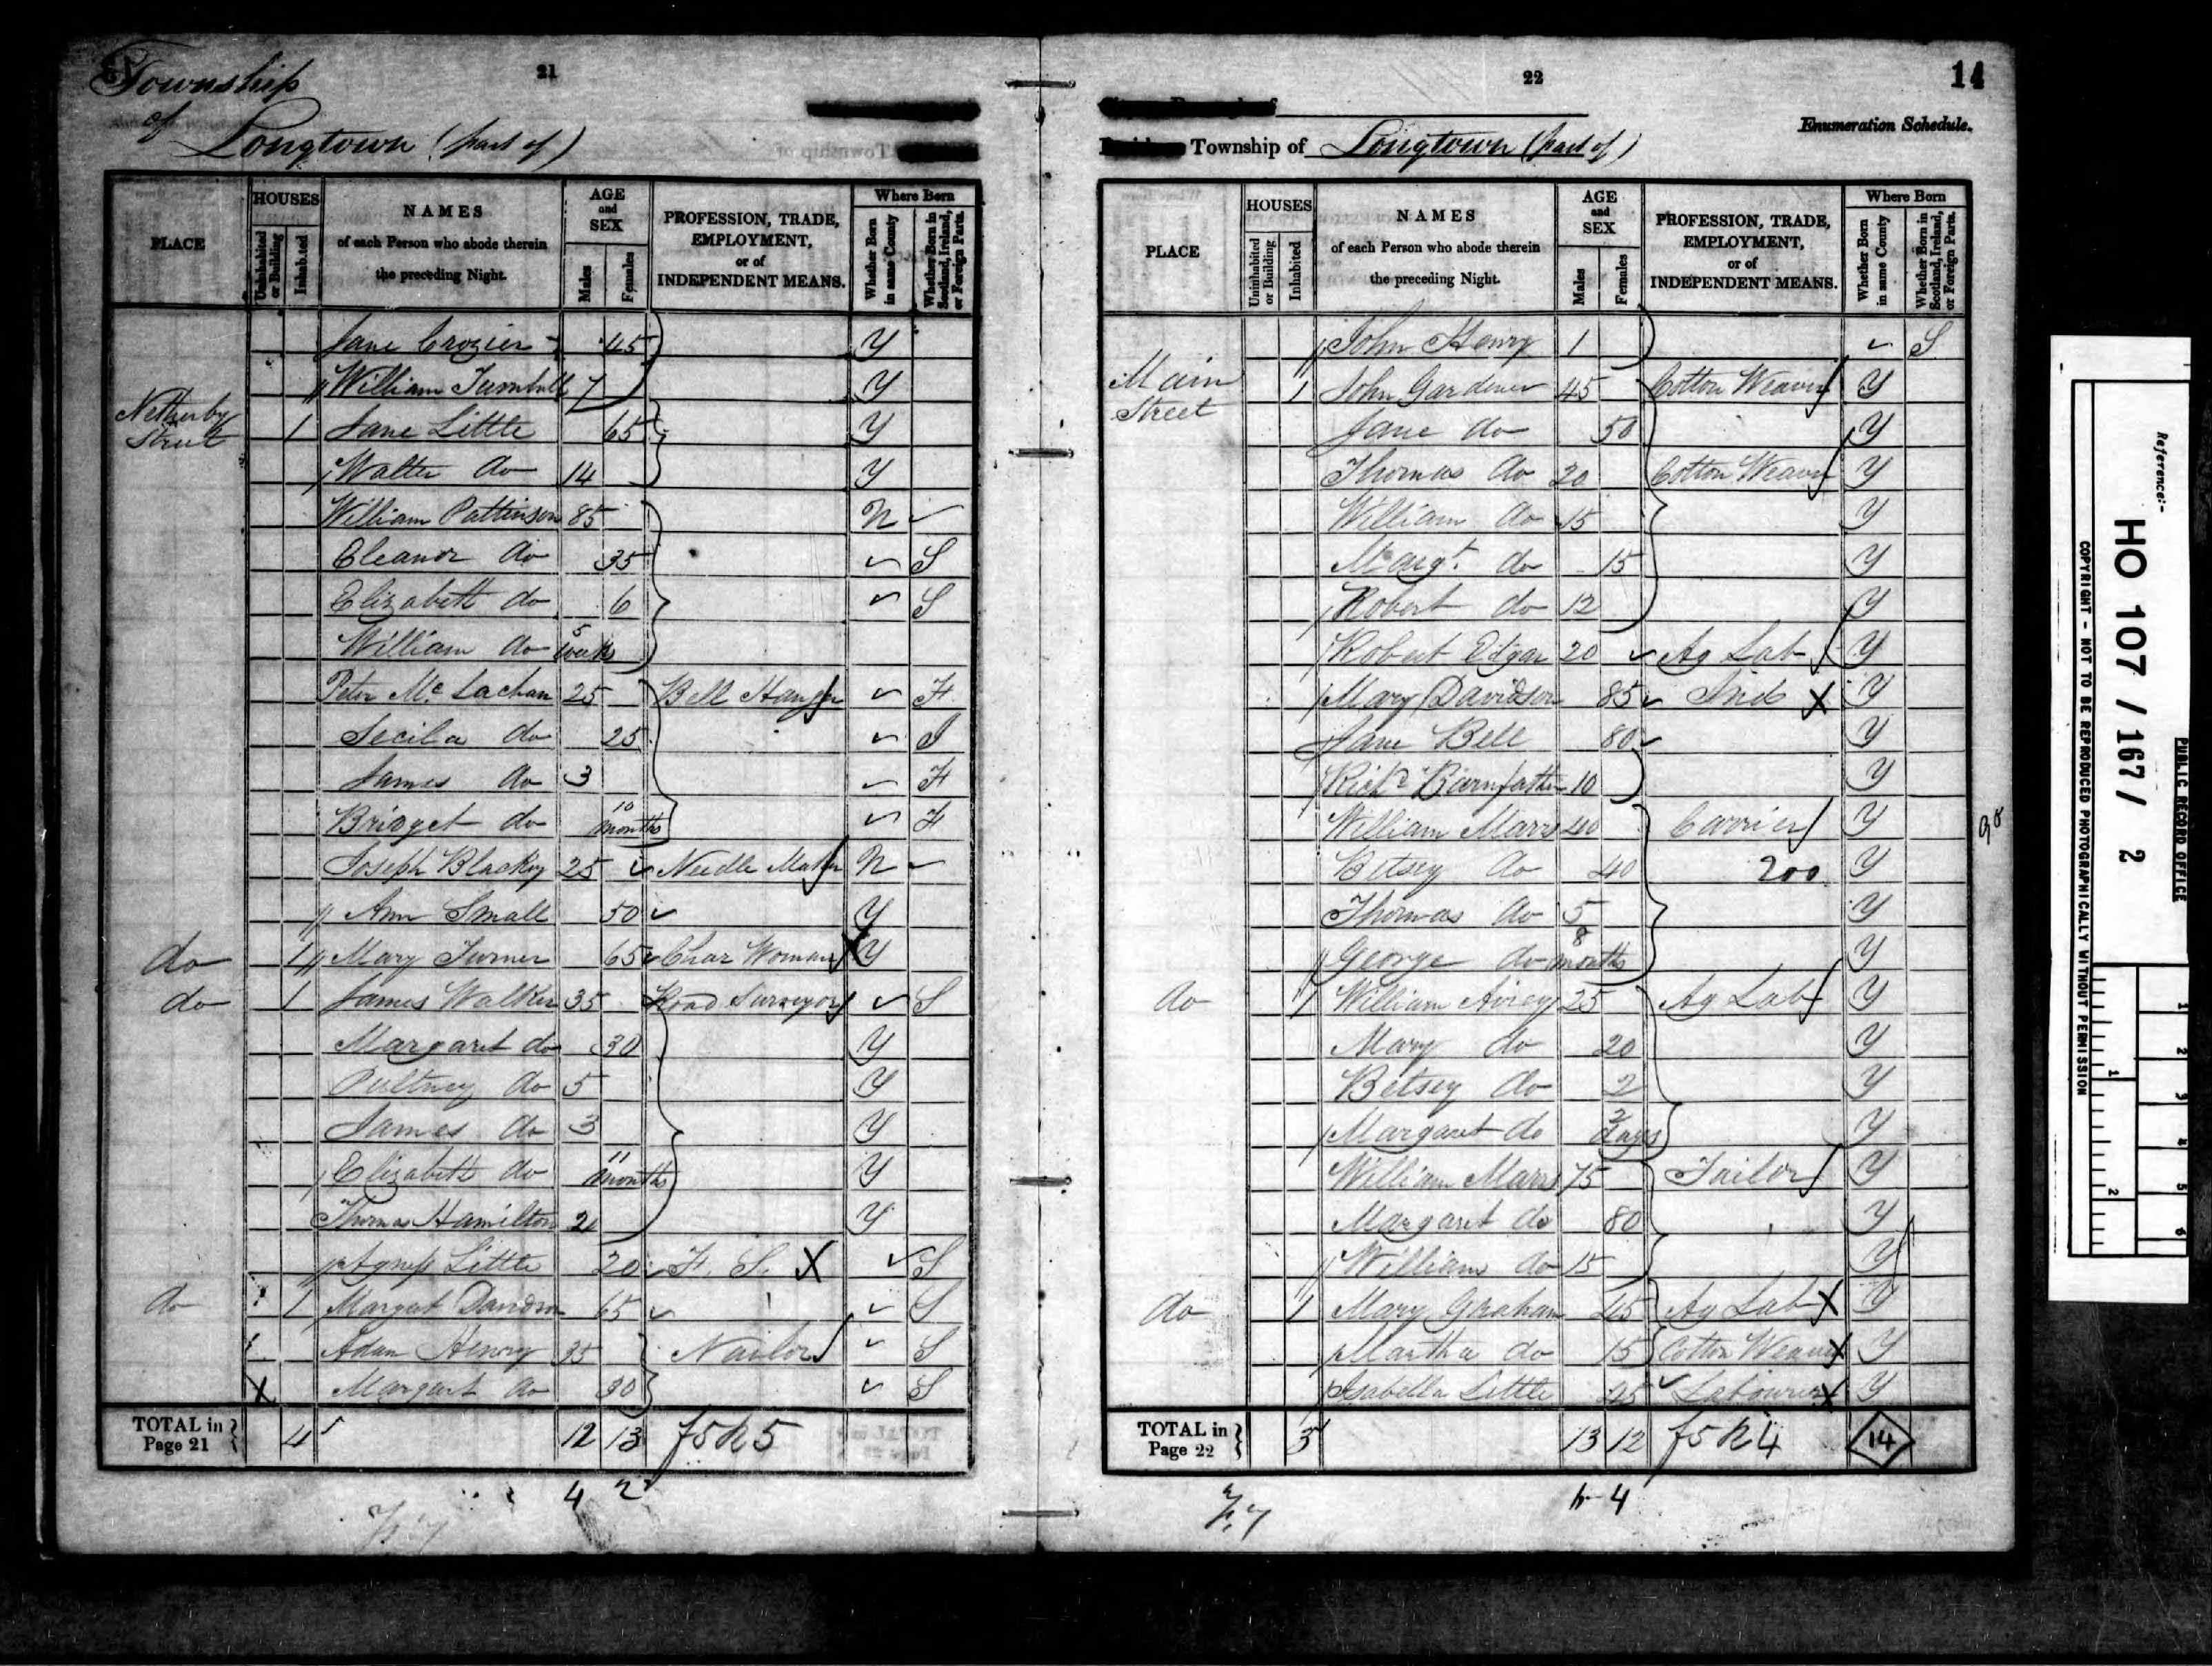 Township
of
Longtown (part of)
21
PLACE
HOUSES
Uninhabited or Building
Inhabited
NAMES
of each Person who abode therein
the preceding Night.
AGE
and
SEX
Males
Females
PROFESSION, TRADE,
EMPLOYMENT,
or of
INDEPENDENT MEANS.
Where Born
Whether Born in same County
Whether Born in Scotland, Ireland, or Foreign Parts.
Jane Crozier 45 Y
William Turnbull 7 Y
Netherby Street 1 Jane Little 65 Y
Walter do 14 Y
William Pattinson 85 N
Eleanor do 35 S
Elizabeth do 6 S
William do 5 weeks
Peter Mc Lachan 25 Bell Hanger F
Secila do 25 I
James do 3 F
Bridget do 10 months F
Joseph Blackey 25 Needle Maker N
Ann Small 50 Y
do 1 Mary Turner 65 Char Woman X Y
do 1 James Walker 35 Road Surveyor S
Margaret do 30 Y
Pultney do 5 Y
James do 3 Y
Elizabeth do 11 months Y
Thomas Hamilton 20 Y
Agness Little 20 F. S. X S
do 1 Margret Davidson 65 S
Adam Henry 35 Nailor S
X Margaret do 30 S
TOTAL in Page 21 4 12 13 f5 h5
4 2
22
14
Enumeration Schedule.
Township of Longtown (part of)
PLACE
HOUSES
Uninhabited or Building
Inhabited
NAMES
of each Person who abode therein
the preceding Night.
AGE
and
SEX
Males
Females
PROFESSION, TRADE,
EMPLOYMENT,
or of
INDEPENDENT MEANS.
Where Born
Whether Born in same County
Whether Born in Scotland, Ireland, or Foreign Parts.
John Henry 1 S
Main Street 1 John Gardener 45 Cotton Weaver Y
Jane do 50 Y
Thomas do 20 Cotton Weaver Y
William do 15 Y
Margt. do 15 Y
Robert do 12 Y
Robert Edgar 20 Ag Lab Y
Mary Davidson 85 Ind X Y
Jane Bell 80 Y
Richd Barnfather 10 Y
William Marrs 40 Carrier Y
Betsey do 40 200 Y
Thomas do 5 Y
George do 8 months Y
do 1 William Airey 25 Ag Lab Y
Mary do 20 Y
Betsey do 2 Y
Margaret do 2 days Y
William Marrs 75 Tailor Y
Margaret do 80 Y
William do 15 Y
do 1 Mary Graham 45 Ag Lab X Y
Martha do 15 Cotton Weaver X Y
Isabella Little 25 Labourer X Y
TOTAL in Page 22 3 13 12 f5 h4 14
4
Reference:-
HO 107 / 167 / 2
PUBLIC RECORD OFFICE
COPYRIGHT - NOT TO BE REPRODUCED PHOTOGRAPHICALLY WITHOUT PERMISSION
1 2 3 4 5 6
1 2